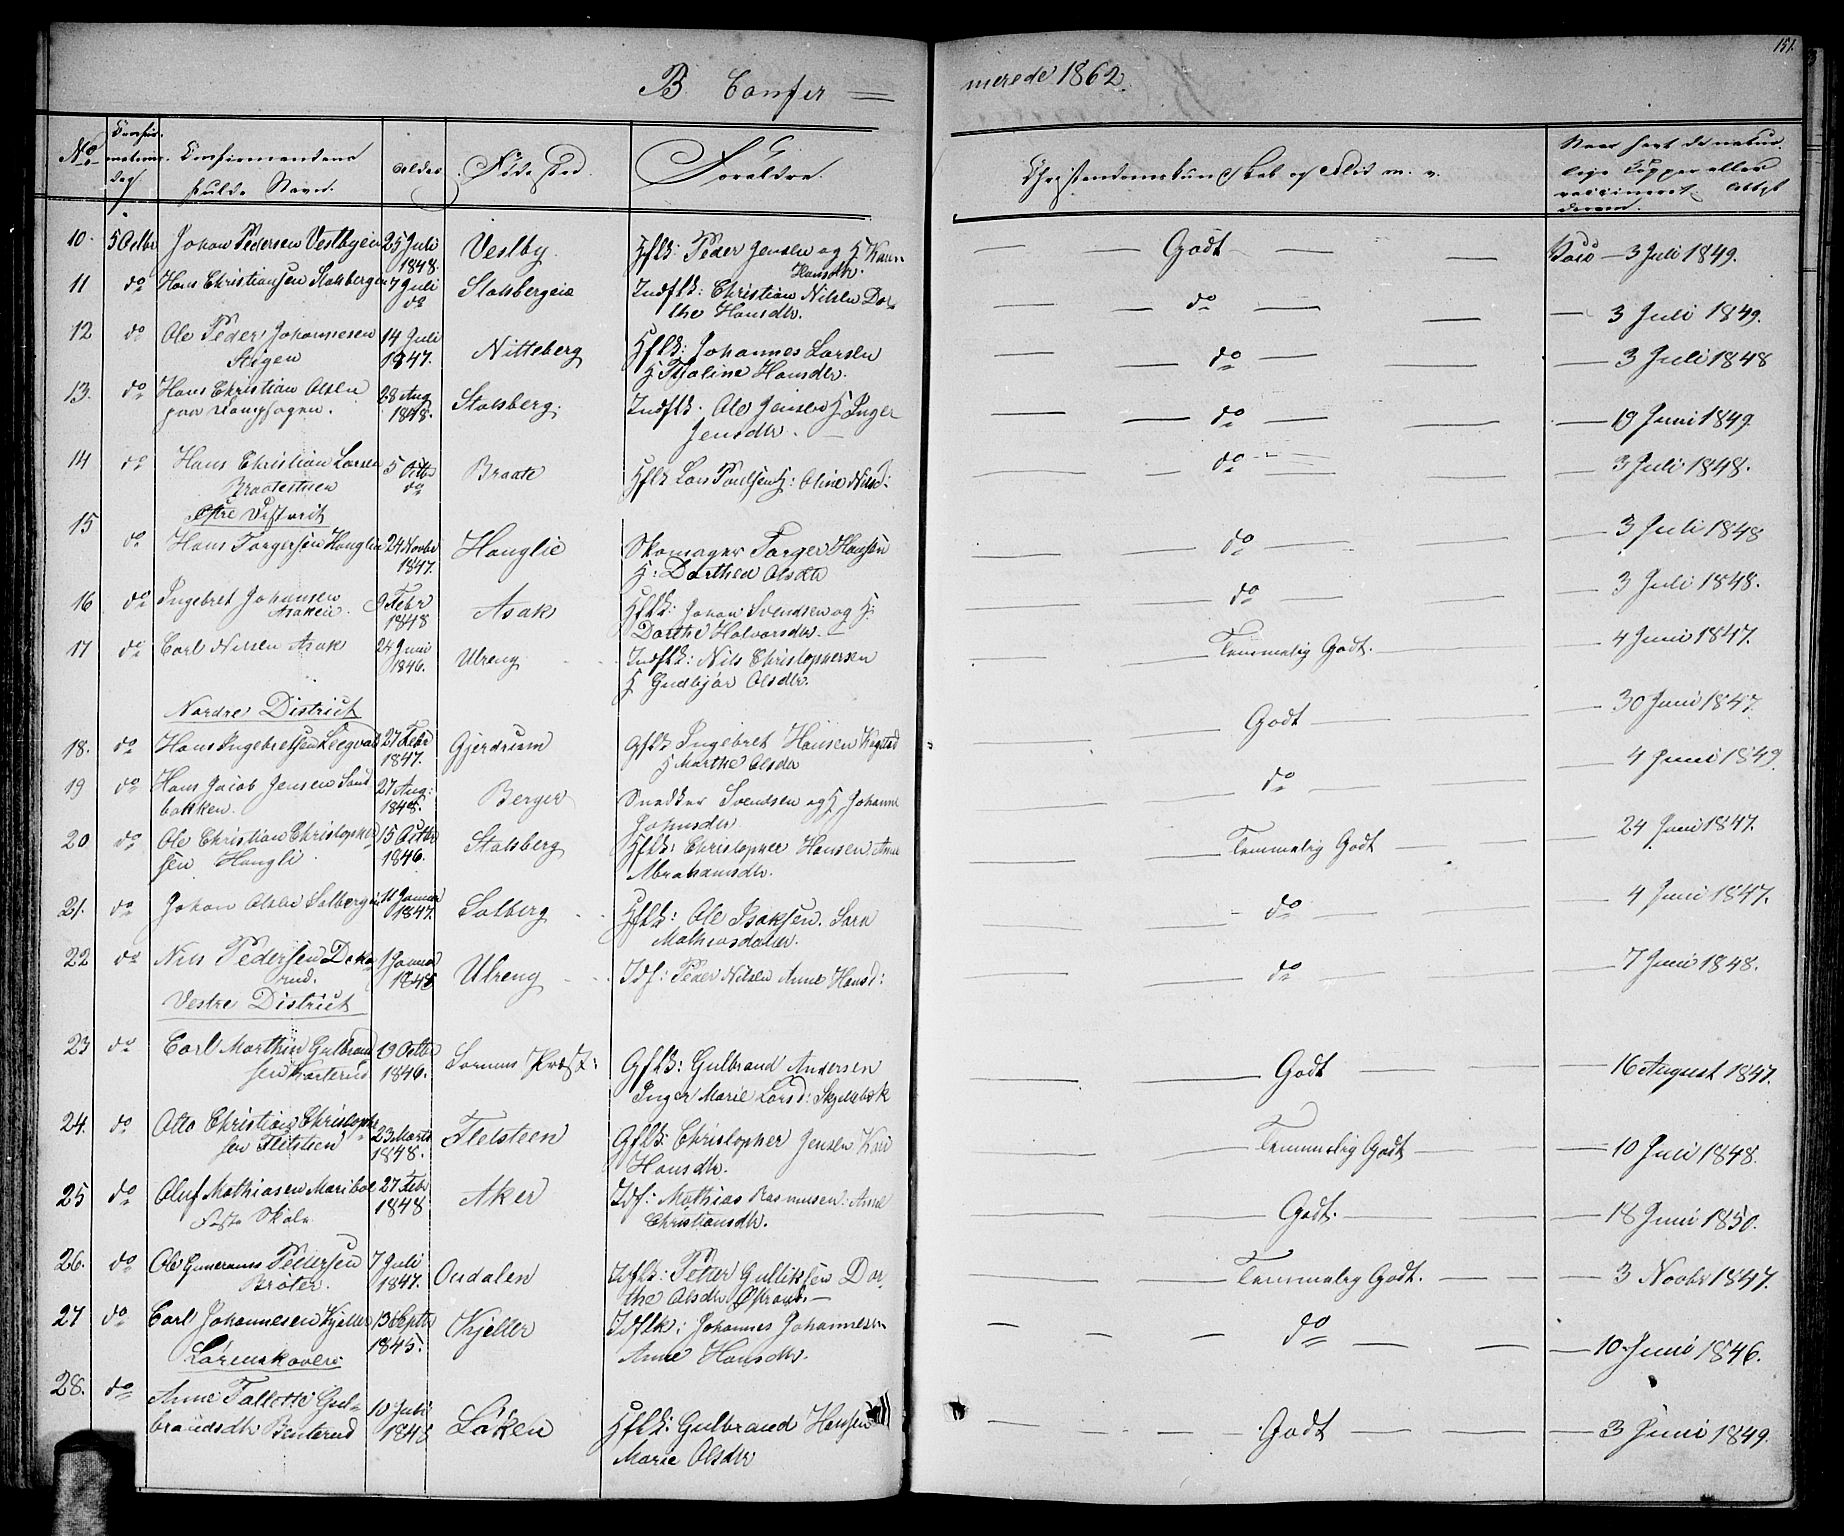 151.
B. Confir = merede 1862.
No Confirmations dag Confirmandens fulde Navn. Alder Fødested. Forældre. Christendomskundskab og Flid m. v. Naar havt de naturlige Kopper eller vaccineret
10. 5 Octbr Johan Pedersen Vestbyen 25 Juli 1848. Vestby. Gflk: Peder Jensen og H Karen Hansdtr. — Godt — Vacc — 3 Juli 1849.
11 do Hans Christiansen Stalsbergeie 7 Juli do Stalsbergeie Indflk: Christian Nilsen Dorthe Hansdtr. — do — 3 Juli 1849.
12 do Ole Peder Johannesen Stigen 14 Juli 1847. Nitteberg Gflk: Johannes Larsen H Thaline Hansdtr. — do — 3 Juli 1848
13. do Hans Christian Olsen paa 28 Aug 1848. Stalsberg. Indflk. Ole Jensen H Inger Jensdtr. — do — 19 Juni 1849.
14 do Hans Christian Larsen Braatestuen 5 Octbr do Braate Gflk Lars Paulsen H: Oline Nilsd: — do — 3 Juli 1848.
Østre District
15 do Hans Torgersen Hauglie 24 Novbr 1847. Hauglie Skomager Torger Hansen H: Dorthea Olsdtr — do — 3 Juli 1848
16 do Ingebret Johansen Asakeie. 9 Febr 1848 Asak Gflk: Johan Svendsen og H: Dorthe Halvorsdtr. — do — 3 Juli 1848.
17 do Carl Nilsen Asak 24 Juni 1846. Ulreng Indflk: Nils Christophersen H Gudbjør Olsdtr. — Temmelig Godt. — 4 Juni 1847.
Nordre District
18. do Hans Ingebretsen Leegvad 27 Febr 1847. Gjerdrum Gflk Ingebret Hansen H Marthe Olsdtr — Godt — 30 Juni 1847.
19 do Hans Jacob Jensen Sandbakken. 27 Aug: 1848. Berger Snedker Svendsen og H Johanne — do — 4 Juni 1849.
20 do Ole Christian Christophersen Haugli. 15 Octbr 1846. Stalsberg Gflk: Christopher Hansen Anne Abrahamsdtr. — Temmelig Godt — 24 Juni 1847.
21. do Johan Olsen Solbergeie 11 Januar 1847. Solberg Gflk: Ole Isaksen. Sara Mathiasdatter. — do — 4 Juni 1847.
22 do Nils Pedersen Dakarud. 1 Januar 1848 Ulreng Idf: Peder Nilsen Anne Hansd: — do — 7 Juni 1848.
Vestre District
23 do Carl Marthin Gulbrandsen 19 Octbr 1846. Sørum Præst: Gflk: Gulbrand Andersen Inger Marie Larsd: — Godt — 16 August 1847.
24. do Otto Christian Christophersen Fletsteen 23 Marts 1848. Fletsteen Gflk: Christopher Jensen Kari Hansdtr. — Temmelig Godt — 10 Juli 1848.
25 do Oluf Mathiasen Mariboe faste Skole 27 Febr 1848 Aker Idf: Mathias Rasmusen: Anne Christiansdtr. — Godt. — 18 Juni 1850.
26. do Ole Gunerius Pedersen Brøter. 7 Juli 1847. Ondalen Idflk: Petter Gulliksen Dorthe Olsdtr — Temmelig Godt. — 3 Novbr 1847.
27 do Carl Johannesen Kjeller 13 Septbr 1845. Kjeller Idflk: Johannes Johannesen Anne Hansdtr. — do — 10. Juni 1846.
Lørenskoven
28. do Anne Tallette Gulbrandsdtr Benterud 10 Juli 1848 Løken Gflk: Gulbrand Hansen Marie Olsdtr — Godt — 3 Juni 1849.